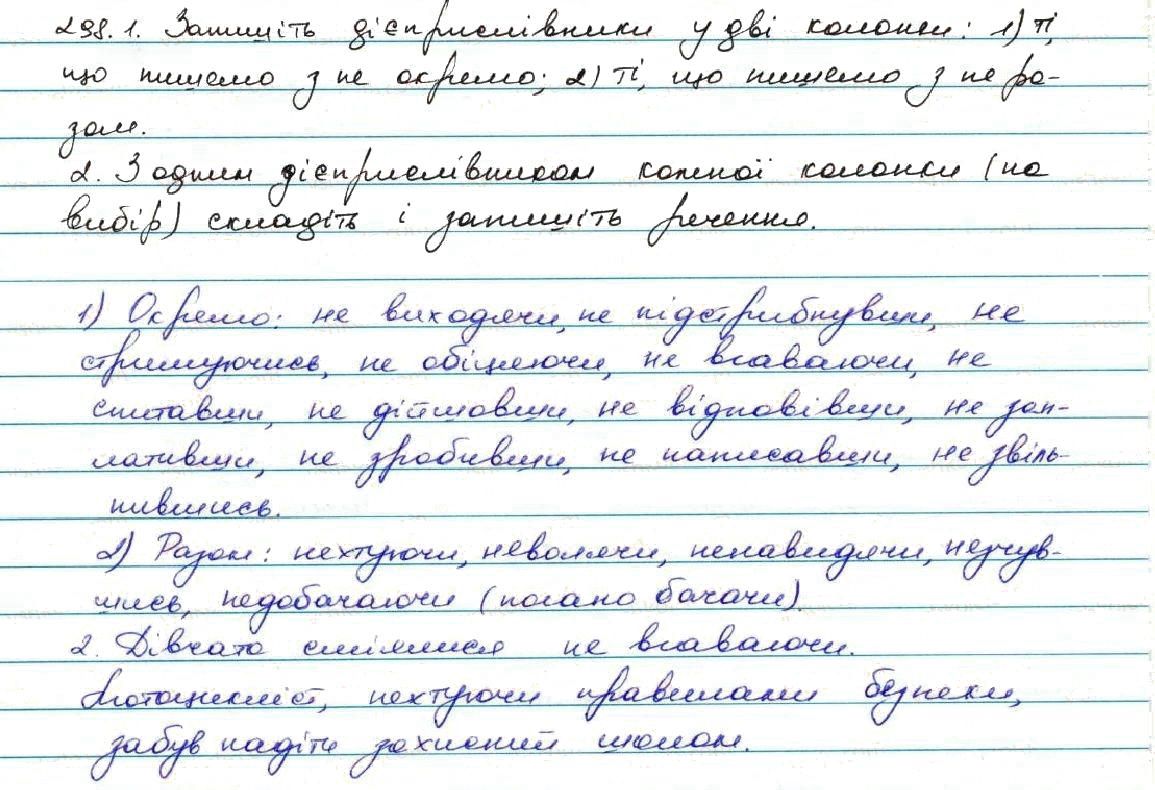 298.1. Запишіть дієприслівники у дві колонки: 1) ті,
що пишемо з не окремо; 2) ті, що пишемо з не ра-
зом.
2. З одним дієприслівником кожної колонки (на
вибір) складіть і запишіть речення.
1) Окремо: не виходячи, не підстрибнувши, не
стримуючись, не обіцяючи, не вгаваючи, не
спитавши, не дійшовши, не відповівши, не зап-
лативши, не зробивши, не написавши, не звіль-
нившись.
2) Разом: нехтуючи, неволячи, ненавидячи, незчув-
шись, недобачаючи (погано бачачи).
2. Дівчата сміялися не вгаваючи.
Мотоцикліст, нехтуючи правилами безпеки,
забув надіти захисний шолом.